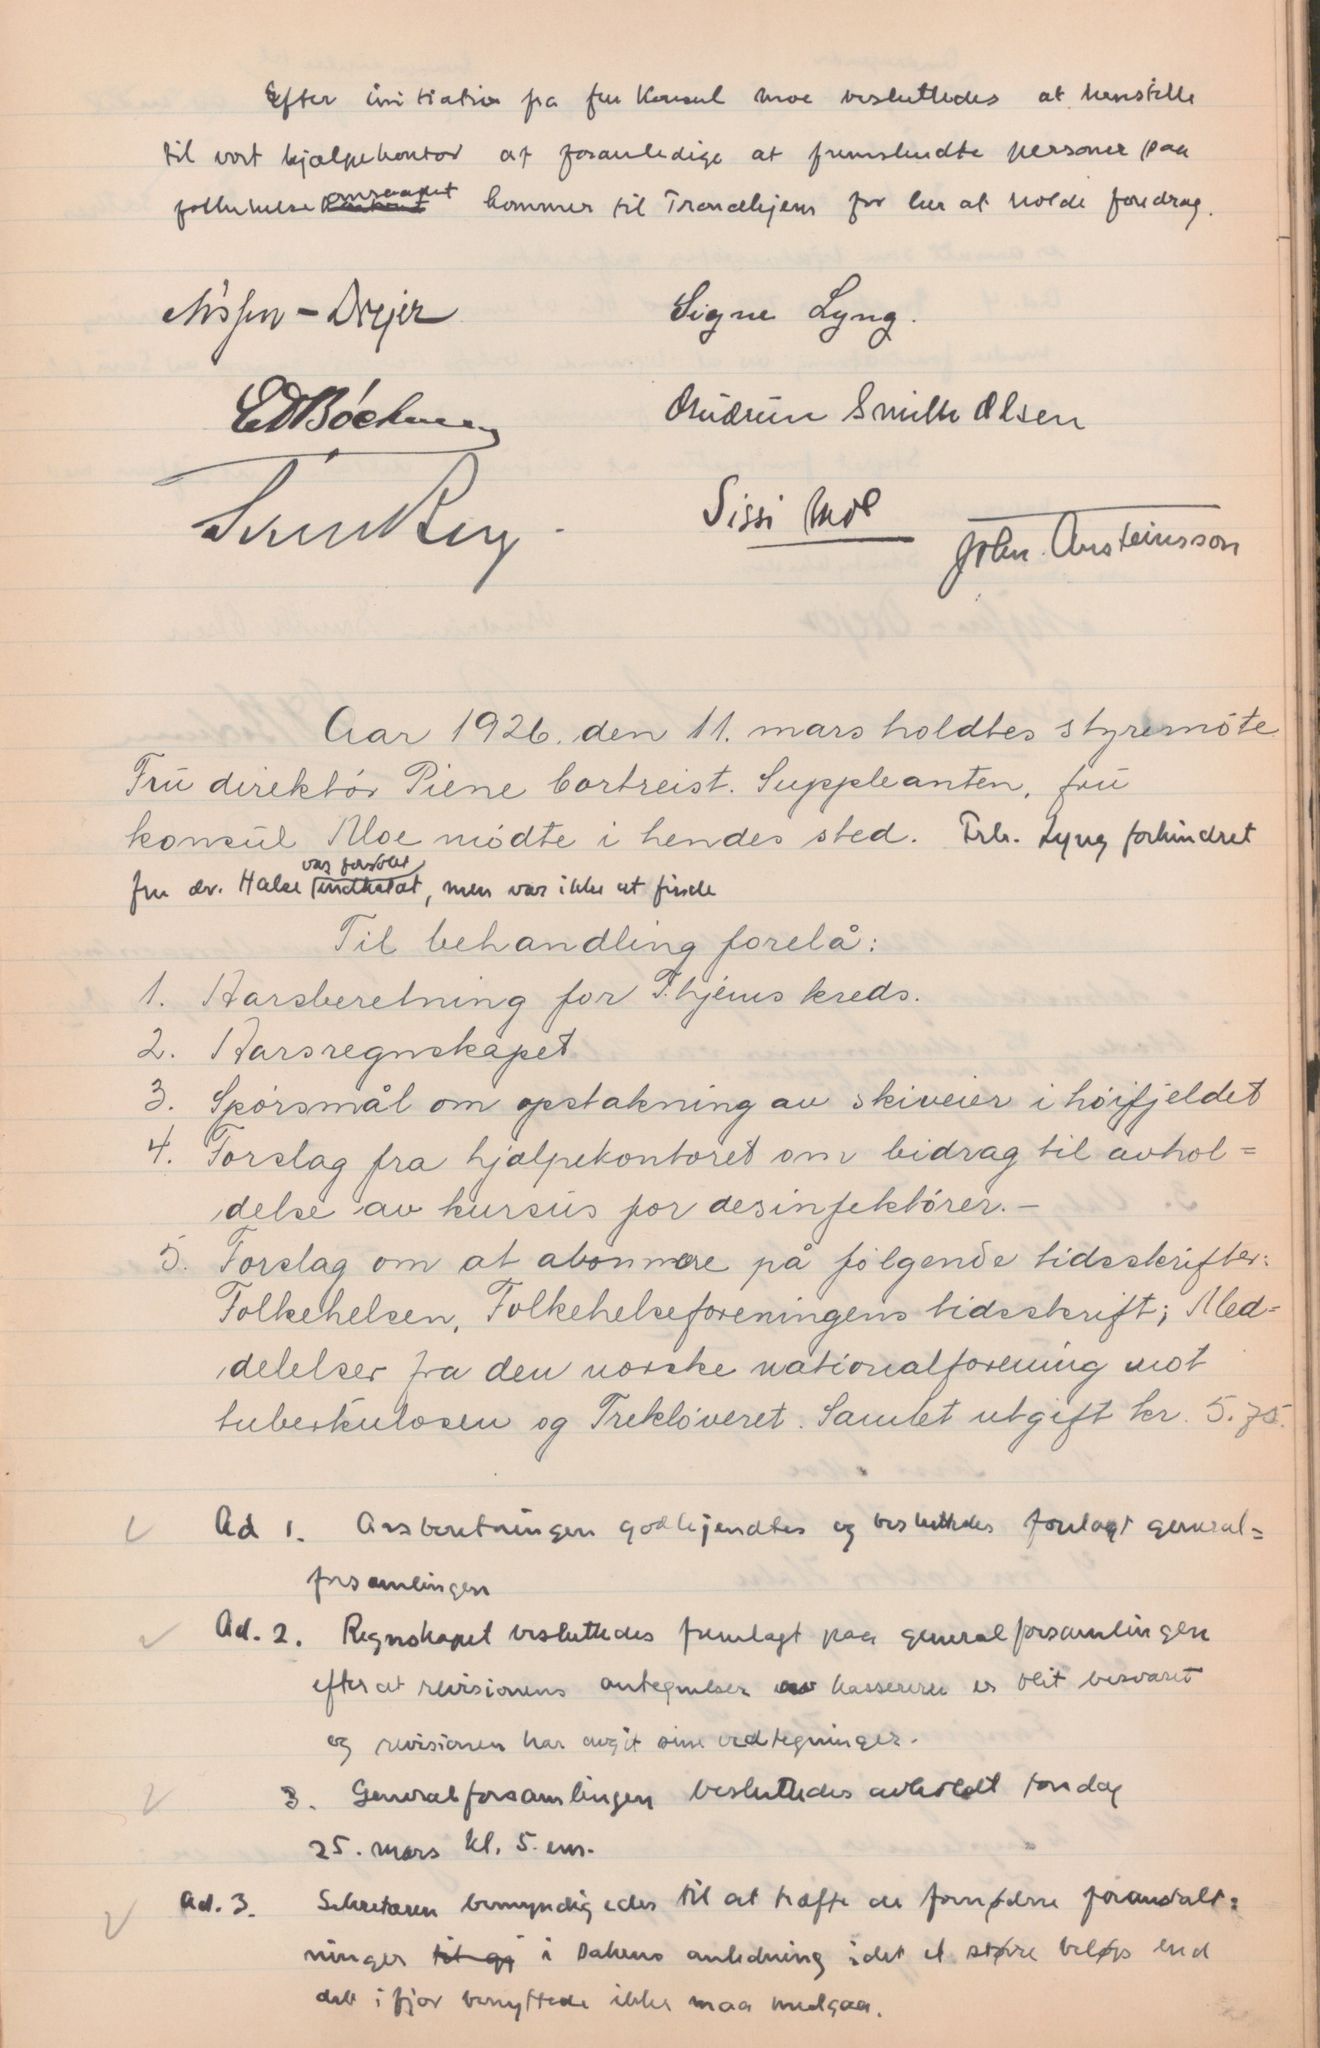 Efter initiativ fra fru Konsul Moe besluttedes at henstille
til vort hjælpekontor at foranledige at fremstaaende personer paa
folkehelseomraadet kommer til Trondhjem for her at holde foredrag.
Nissen-Dreyer
Signe Lyng.
Gudrun Smith Olsen
Sissi Moe
John Arsteinsson
Aar 1926. den 11. mars holdtes styremöte
Frü direktör Piene bortreist. Suppleanten, frü
konsül Moe mødte i hendes sted. Frk. Lyng forhindret
var forsökt
fru dr. Halse indkaldt, men var ikke at finde
Til behandling forelå:
1. Aarsberetning for T.hjems kreds.
2. Aarsregnskapet
3. Spørsmål om opstakning av skiveier i høifjeldet
4. Forslag fra hjælpekontoret om bidrag til avhol=
delse av kursüs for desinfektører.-
5. Forslag om at abonnere på følgende tidsskrifter:
Folkehelsen, Folkehelseforeningens tidsskrift; Med=
delelser fra den norske nationalforening mot
tuberkulosen og Trekløveret. Samlet utgift kr. 5.75.
Ad 1. Arsberetningen godkjendtes og besluttedes forelagt general=
forsamlingen
Ad. 2. Regnskapet besluttedes fremlagt paa generalforsamlingen
efter at revisionens antegnelser av kassereren er blit besvaret
og revisionen har avgit sine vedtegninger.
3. Generalforsamlingen besluttedes avholdt torsdag
25. mars kl. 5 em.
Ad. 3. Sekretæren bemyndigedes til at træffe de fornødne foranstalt=
ninger i sakens anledning idet et større beløp end
det i fjor benyttede ikke maa medgaa.